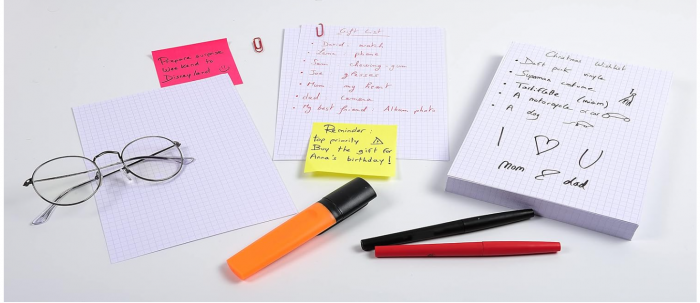 Prepare surprise
weekend to
Disneyland
Gift List
• David: watch
• Luna: phone
• Sam: chewing-gum
• Joe: glasses
• Mum: my heart
• dad: camera
• My best friend: Album photo
Reminder:
top priority
Buy the gift for
Anna's birthday!
Christmas Wishlist
• Daft punk vinyle
• Superman costume
• Tartiflette (miam)
• A motorcycle or car
• A dog
I ♡ U
mom & dad